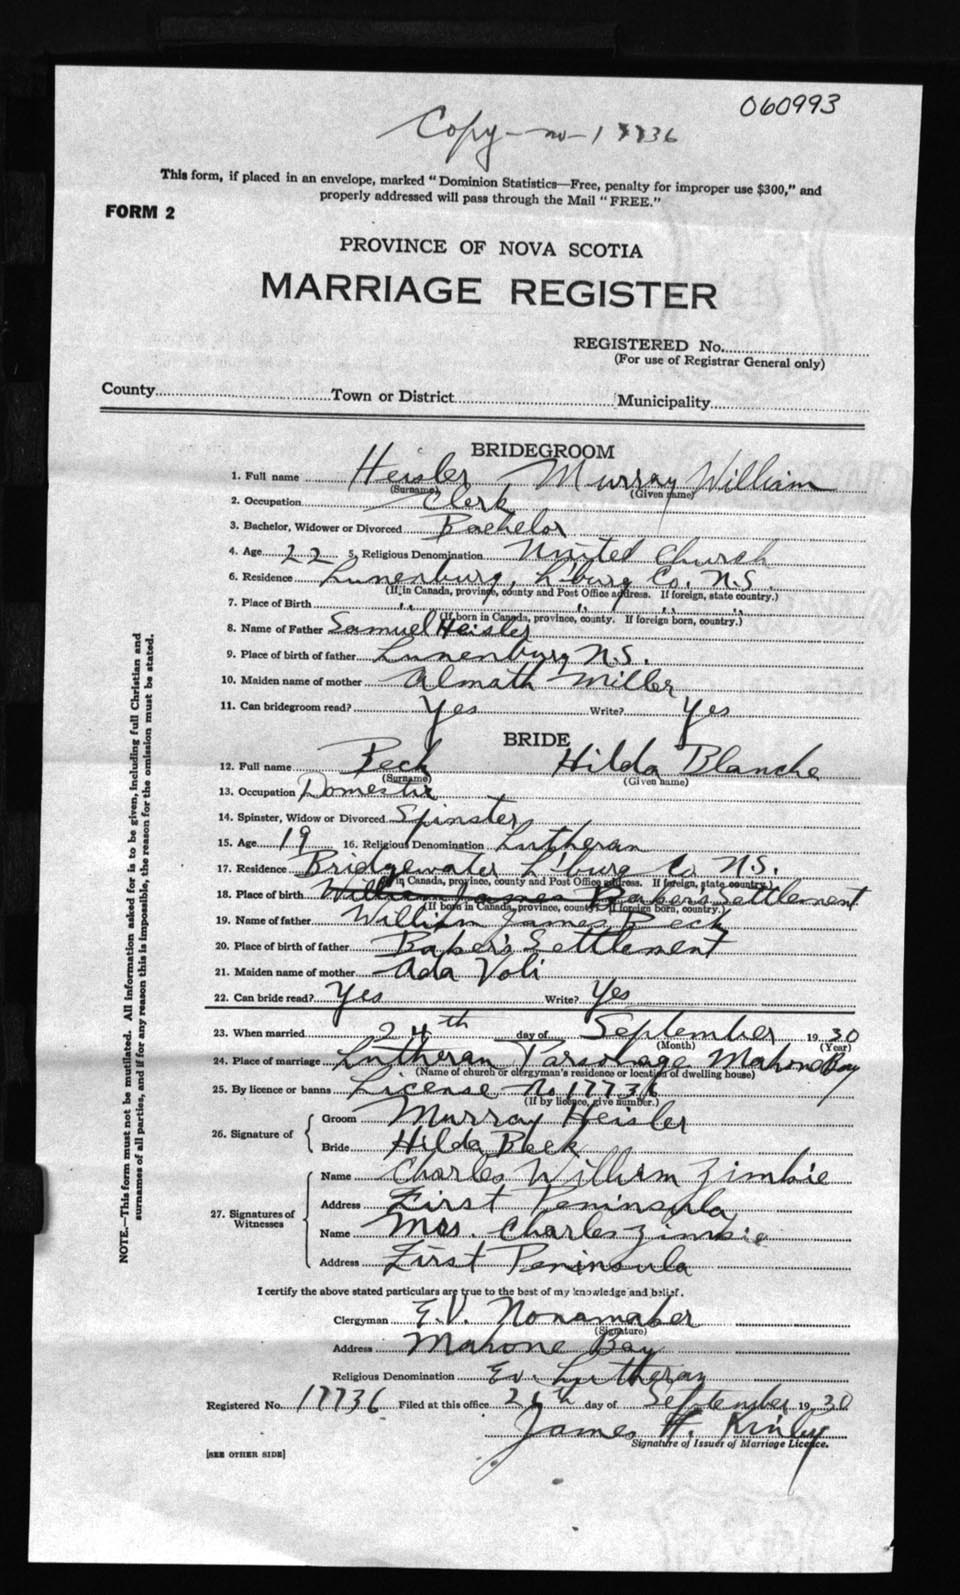 060993
Copy - no - 17736
This form, if placed in an envelope, marked "Dominion Statistics—Free, penalty for improper use $300," and
properly addressed will pass through the Mail "FREE."
FORM 2
PROVINCE OF NOVA SCOTIA
MARRIAGE REGISTER
REGISTERED No.
(For use of Registrar General only)
County Town or District Municipality
BRIDEGROOM
1. Full name Heisler Murray William
(Surname) (Given name)
2. Occupation Clerk
3. Bachelor, Widower or Divorced Bachelor
4. Age 22 5. Religious Denomination United Church
6. Residence Lunenburg, L'burg Co. N.S.
(If in Canada, province, county and Post Office address. If foreign, state country.)
7. Place of Birth " " " "
(If born in Canada, province, county. If foreign born, country.)
8. Name of Father Samuel Heisler
9. Place of birth of father Lunenburg N.S.
10. Maiden name of mother Almath Miller
11. Can bridegroom read? Yes Write? Yes
BRIDE
12. Full name Beck Hilda Blanche
(Surname) (Given name)
13. Occupation Domestic
14. Spinster, Widow or Divorced Spinster
15. Age 19 16. Religious Denomination Lutheran
17. Residence Bridgewater L'burg Co. N.S.
(If in Canada, province, county and Post Office address. If foreign, state country.)
18. Place of birth William James Baker's Settlement
(If born in Canada, province, county. If foreign born, country.)
19. Name of father William James Beck
20. Place of birth of father Baker's Settlement
21. Maiden name of mother Ada Voli
22. Can bride read? Yes Write? Yes
23. When married 24th day of September 1930
(Month) (Year)
24. Place of marriage Lutheran Parsonage Mahone Bay
(Name of church or clergyman's residence or location of dwelling house)
25. By licence or banns License No 17736
(If by licence, give number.)
26. Signature of { Groom Murray Heisler
Bride Hilda Beck
27. Signatures of Witnesses { Name Charles William Zimkie
Address First Peninsula
Name Mrs. Charles Zimkie
Address First Peninsula
I certify the above stated particulars are true to the best of my knowledge and belief.
Clergyman E.V. Nonamaker
(Signature)
Address Mahone Bay
Religious Denomination Ev. Lutheran
Registered No. 17736 Filed at this office day of September 1930
James H. Kinley
Signature of Issuer of Marriage Licence.
[SEE OTHER SIDE]
NOTE.—This form must not be mutilated. All information asked for is to be given, including full Christian and
surnames of all parties, and if for any reason this is impossible, the reason for the omission must be stated.